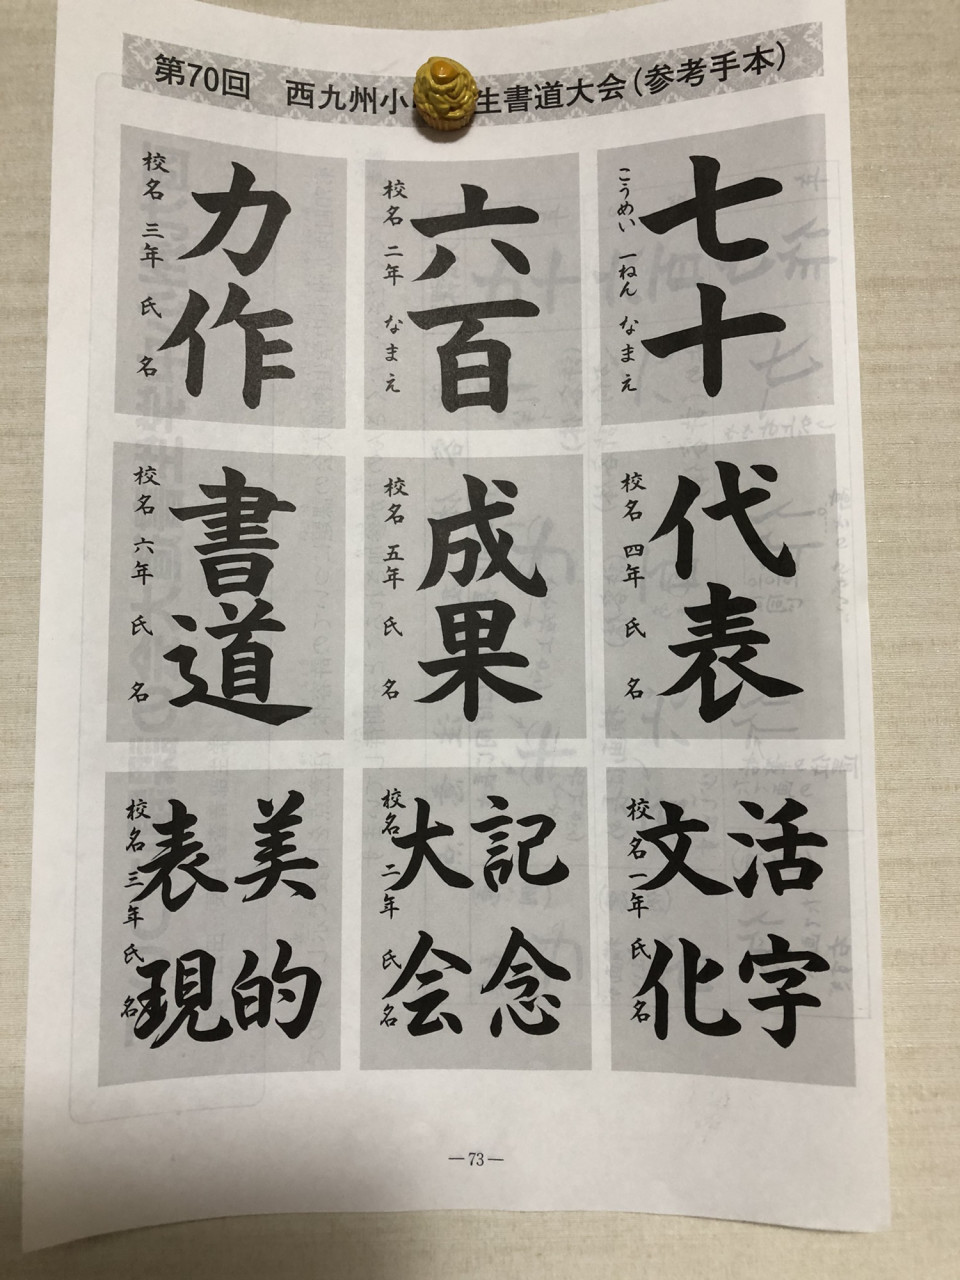 第70回 西九州小 生書道大会(参考手本)
七十
こうめい 一ねん なまえ
六百
校名 二年 なまえ
力作
校名 三年 氏名
代表
校名 四年 氏名
成果
校名 五年 氏名
書道
校名 六年 氏名
活字
文化
校名 一年 氏名
記念
大会
校名 二年 氏名
美的
表現
校名 三年 氏名
—73—